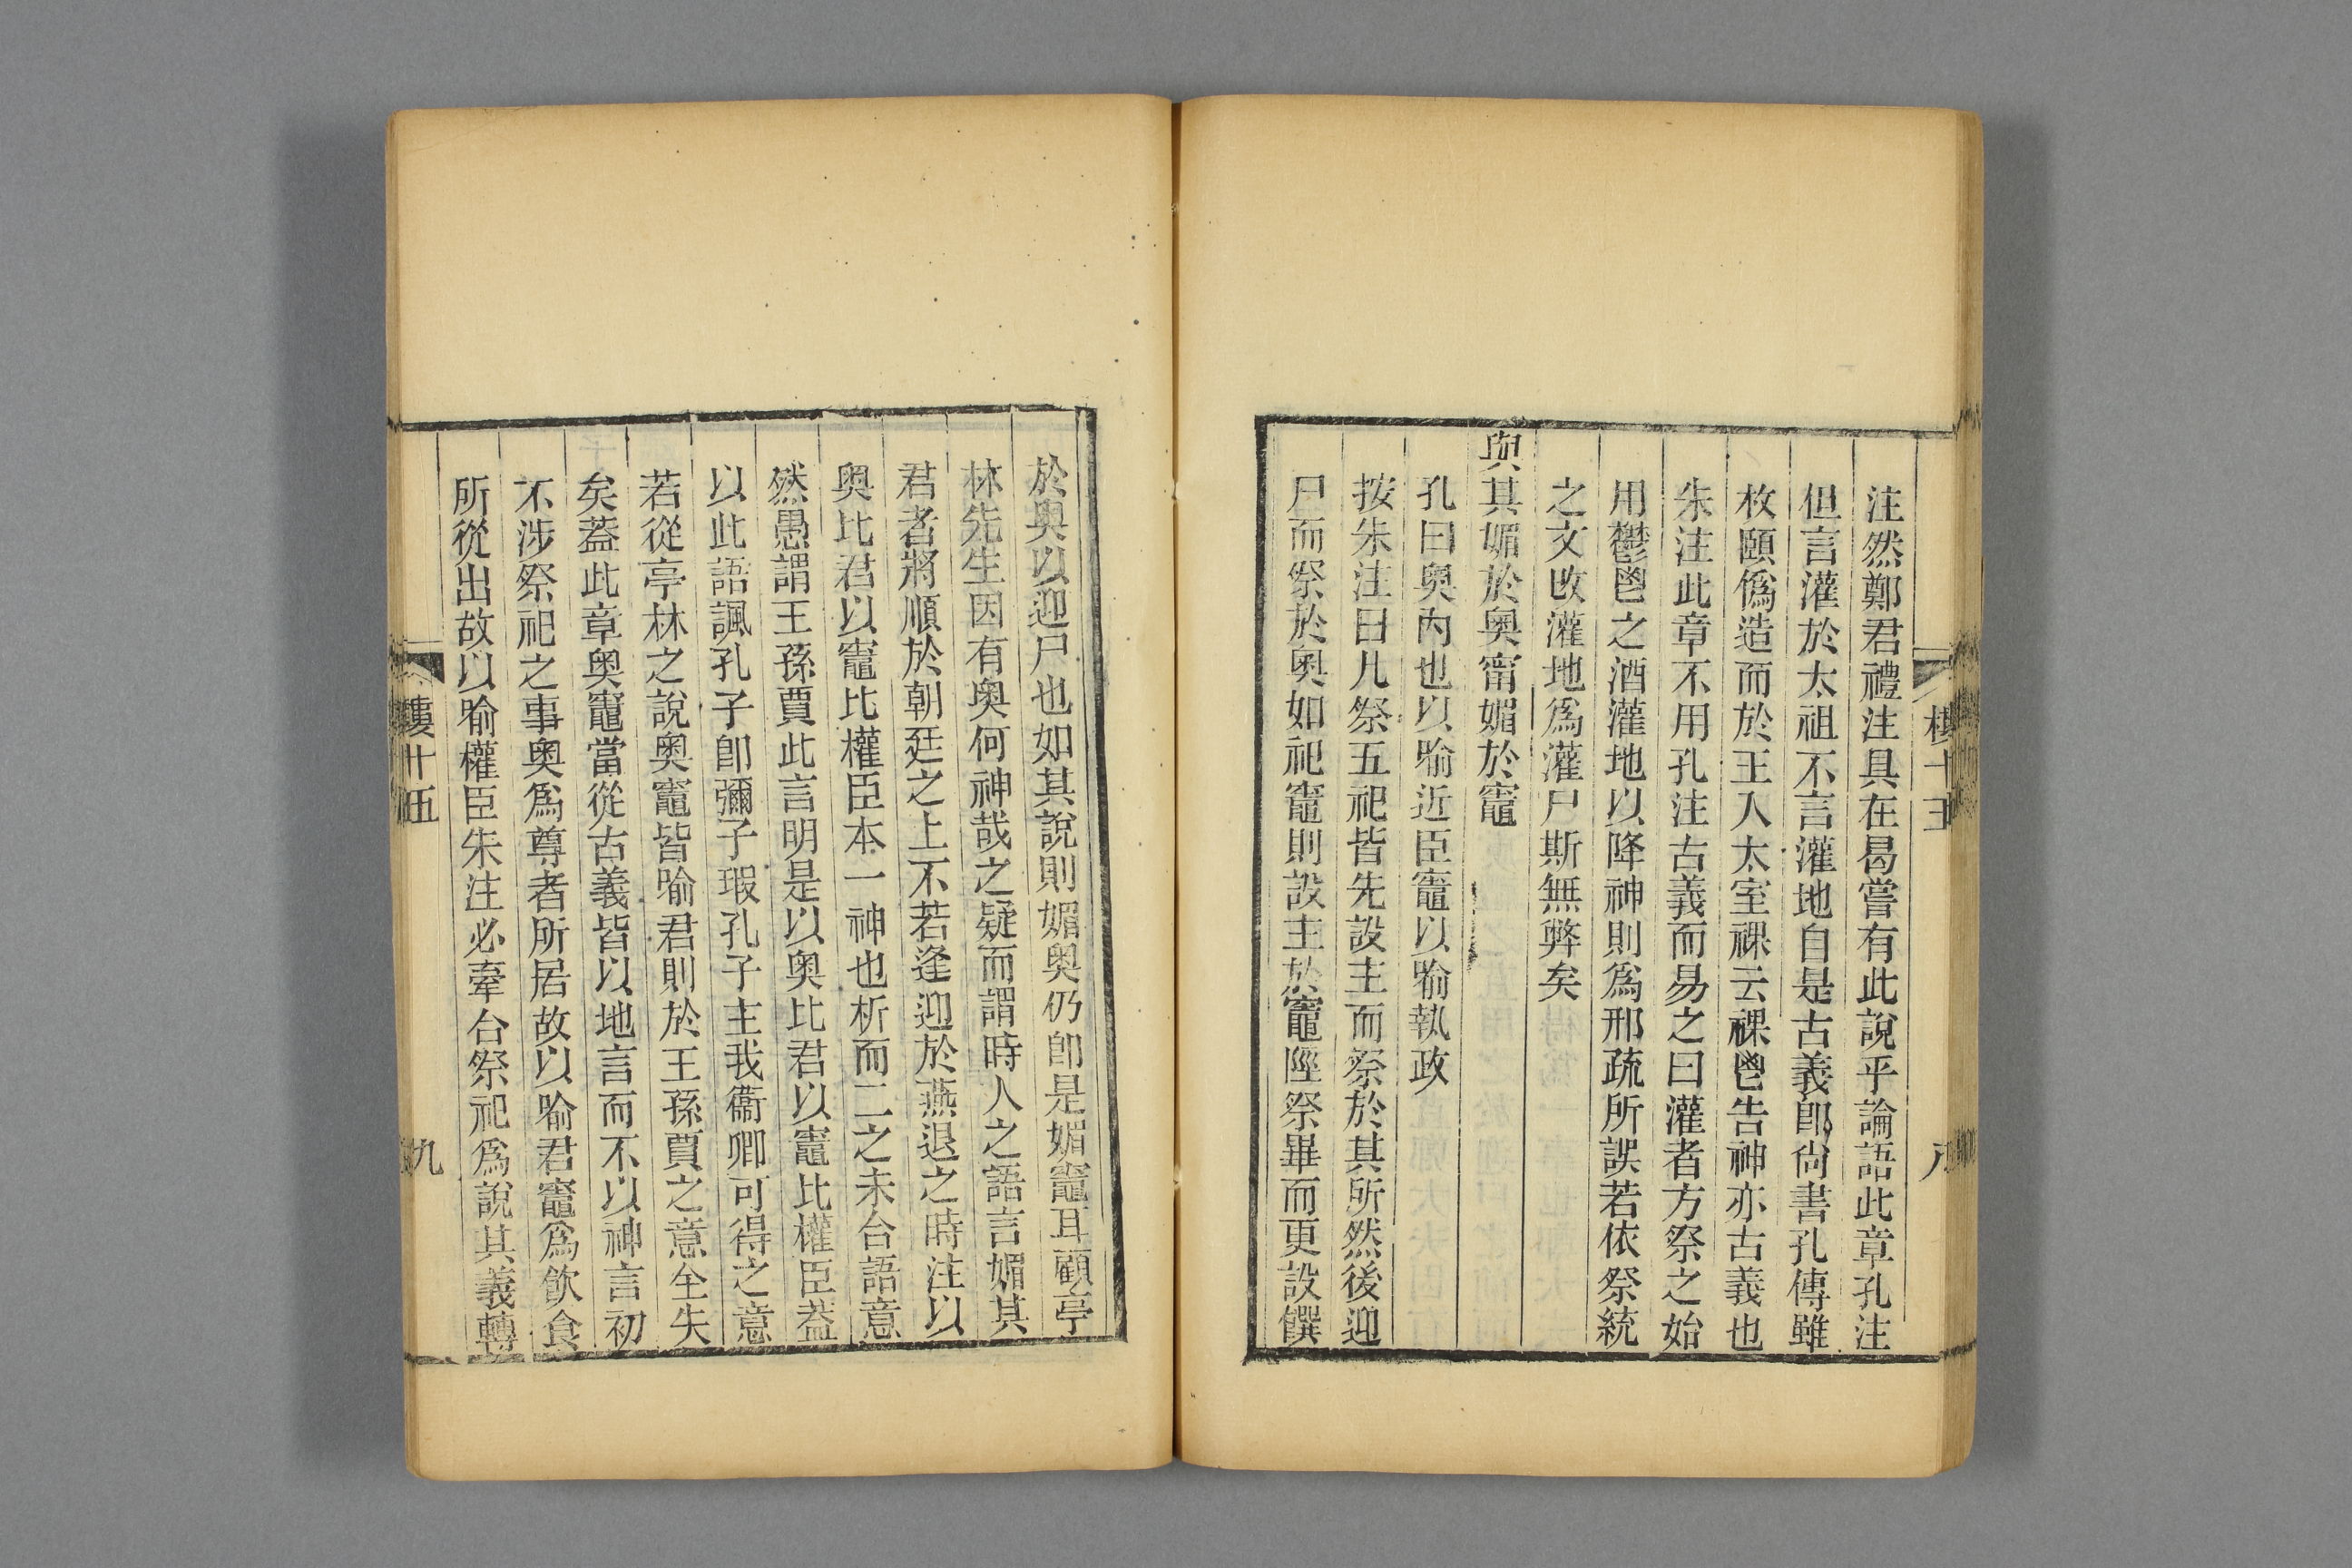 注然鄭君禮注具在曷嘗有此說乎論語此章孔注
但言灌於太祖不言灌地自是古義卽尙書孔傳雖
枚頤僞造而於王入太室祼云祼鬯告神亦古義也
朱注此章不用孔注古義而易之曰灌者方祭之始
用鬱鬯之酒灌地以降神則爲邢疏所誤若依祭統
之文改灌地爲灌尸斯無弊矣
與其媚於奧甯媚於竈
孔曰奧內也以喻近臣竈以喻執政
按朱注曰凡祭五祀皆先設主而祭於其所然後迎
尸而祭於奧如祀竈則設主於竈陘祭畢而更設饌
樓十五
八
於奧以迎尸也如其說則媚奧仍卽是媚竈耳顧亭
林先生因有奧何神哉之疑而謂時人之語言媚其
君者將順於朝廷之上不若逢迎於燕退之時注以
奧比君以竈比權臣本一神也析而二之未合語意
然愚謂王孫賈此言明是以奧比君以竈比權臣蓋
以此語諷孔子卽彌子瑕孔子主我衞卿可得之意
若從亭林之說奧竈皆喻君則於王孫賈之意全失
矣蓋此章奧竈當從古義皆以地言而不以神言初
不涉祭祀之事奧爲尊者所居故以喻君竈爲飲食
所從出故以喻權臣朱注必牽合祭祀爲說其義轉
樓十五
九